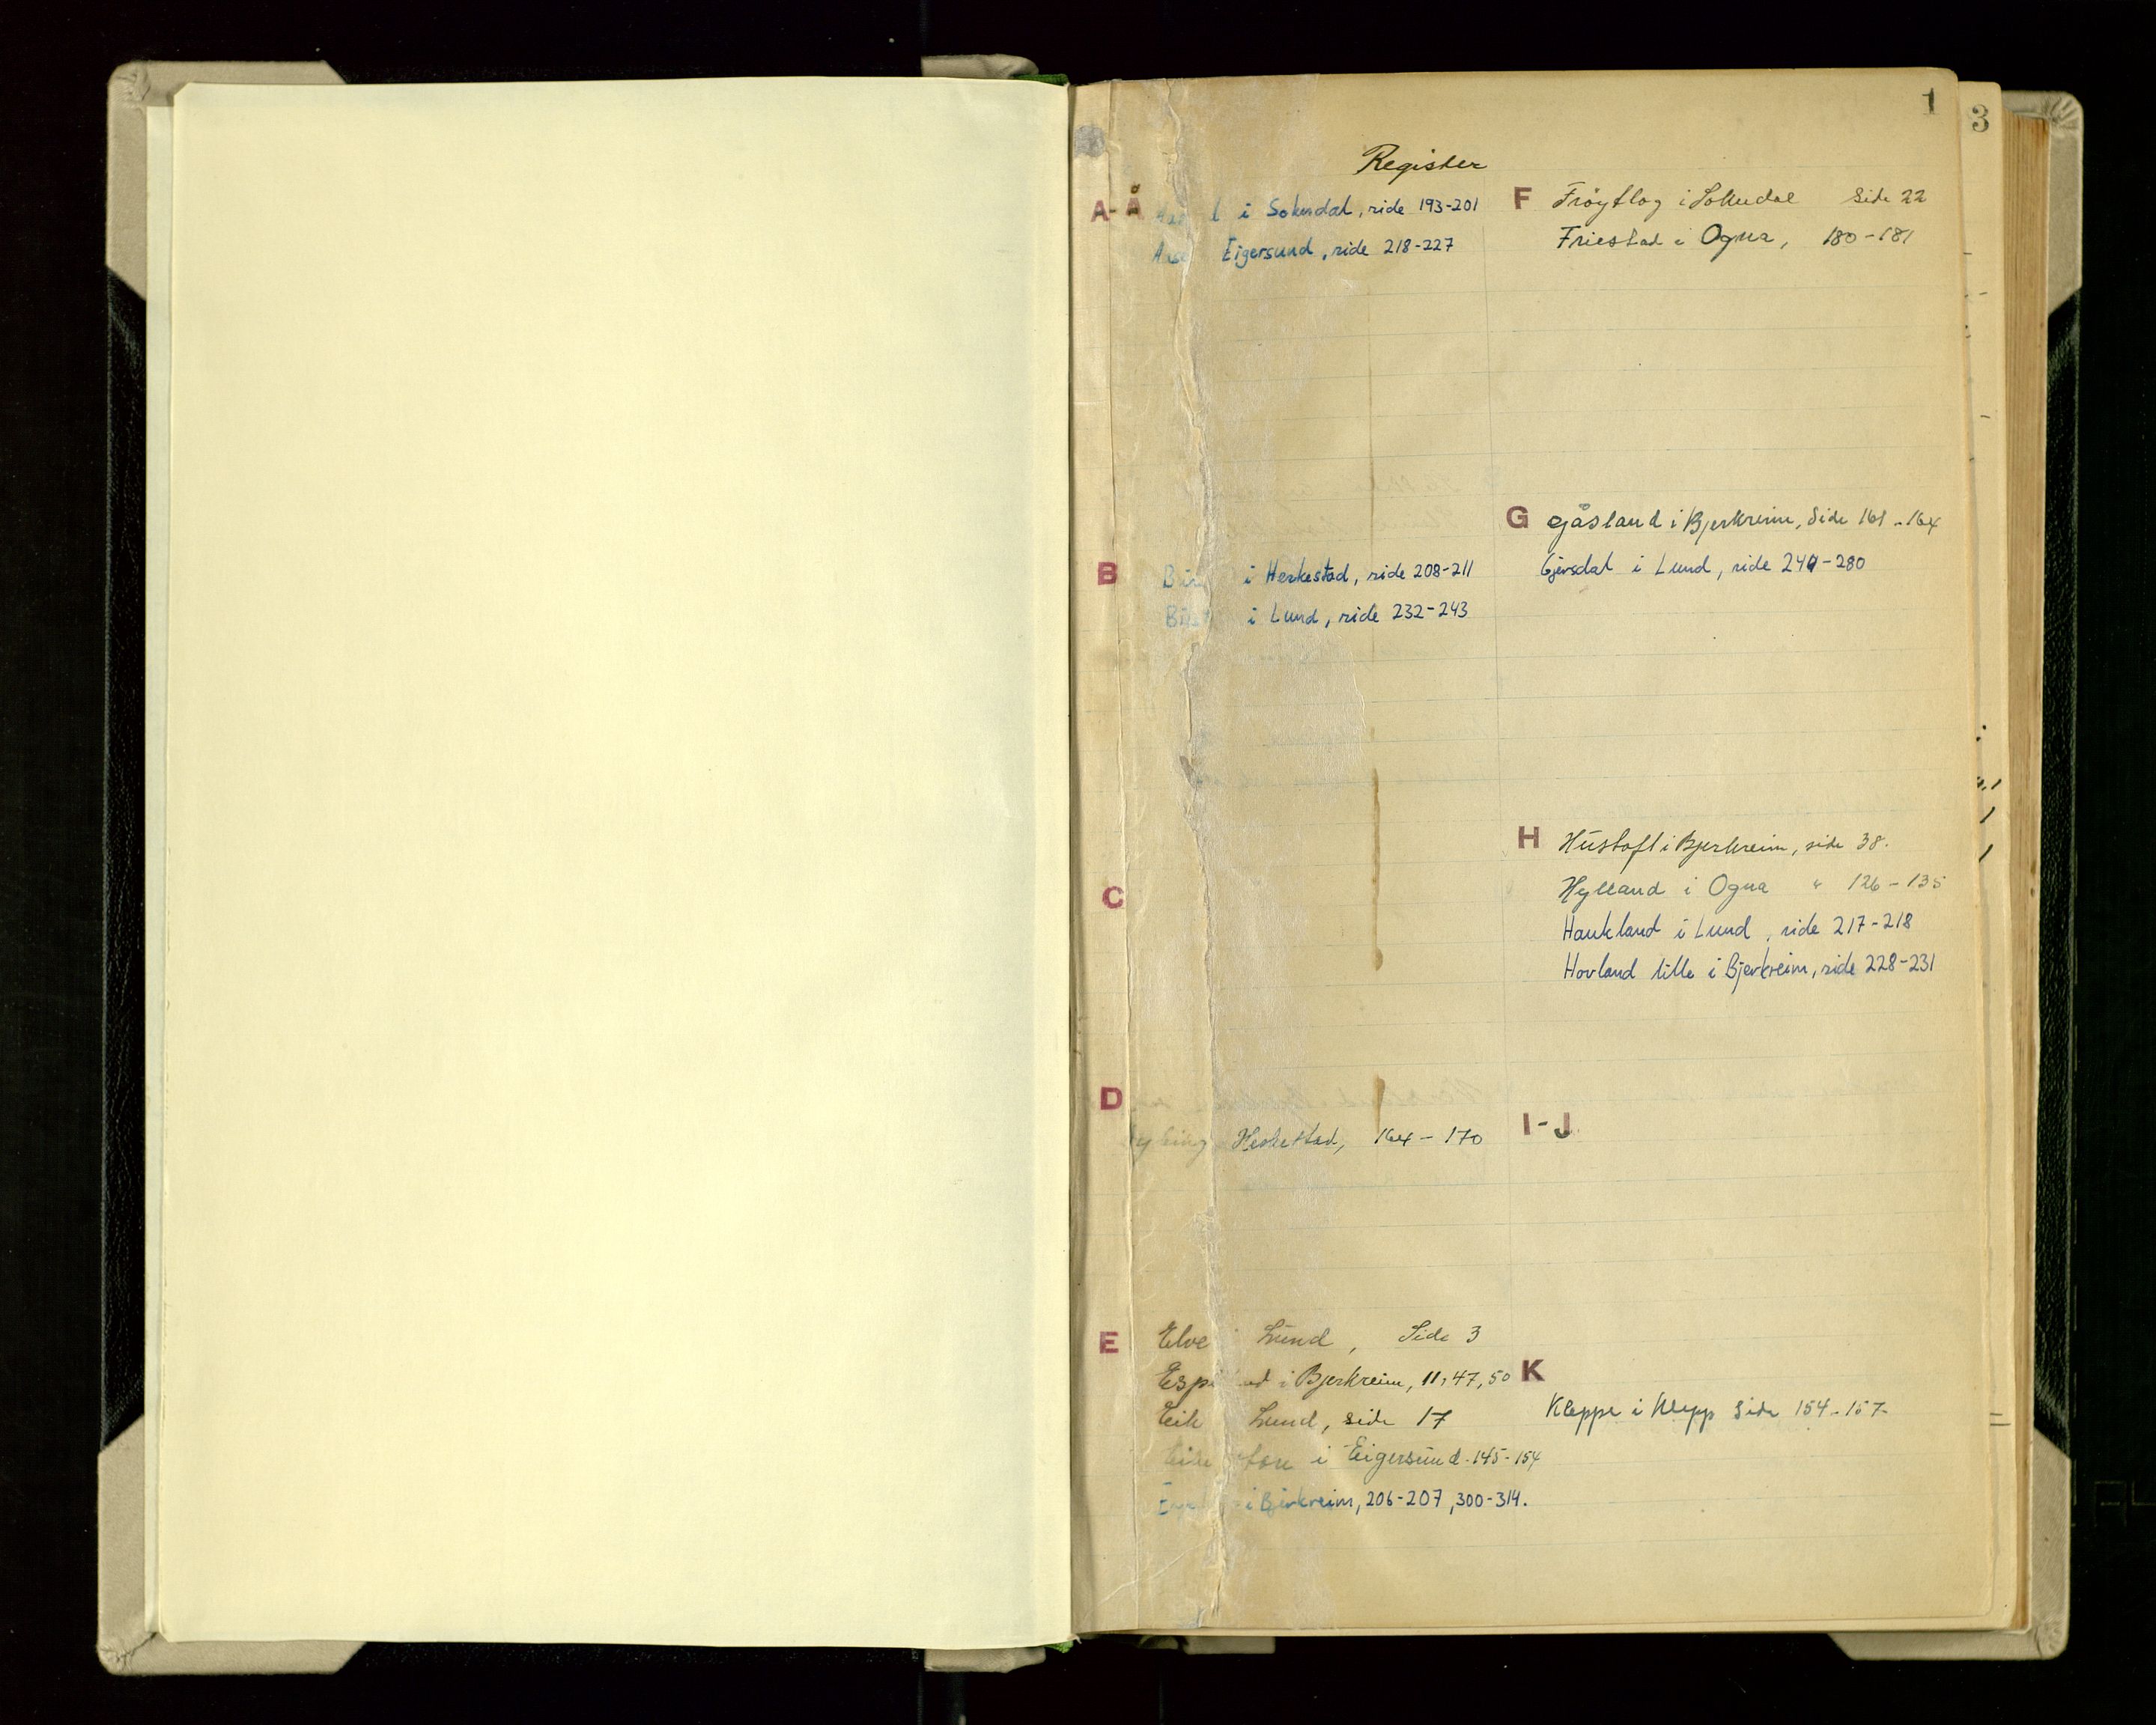 1
3
Register
A-Å
l i Sokndal, side 193-201
Eigersund, side 218-227
B
i Heskestad, side 208-211
i Lund, side 232-243
C
D
Heskestad, 164-170
E
Elve Lund, Side 3
Esp nd i Bjerkreim, 11, 47, 50
Eik Lund, side 17
i Eigersund - 145-154
i Bjerkreim, 206-207, 300-314.
F
Frøytlog i Sokndal Side 22
Friestad i Ogna, 180-181
G
Gåsland i Bjerkreim, Side 161-164
Gjersdal i Lund, side 240-280
H
Hustoft i Bjerkreim, side 38.
Hylland i Ogna " 126-135
Haukland i Lund, side 217-218
Hovland lille i Bjerkreim, side 228-231
I-J
K
Kleppe i Klepp Side 154-157-